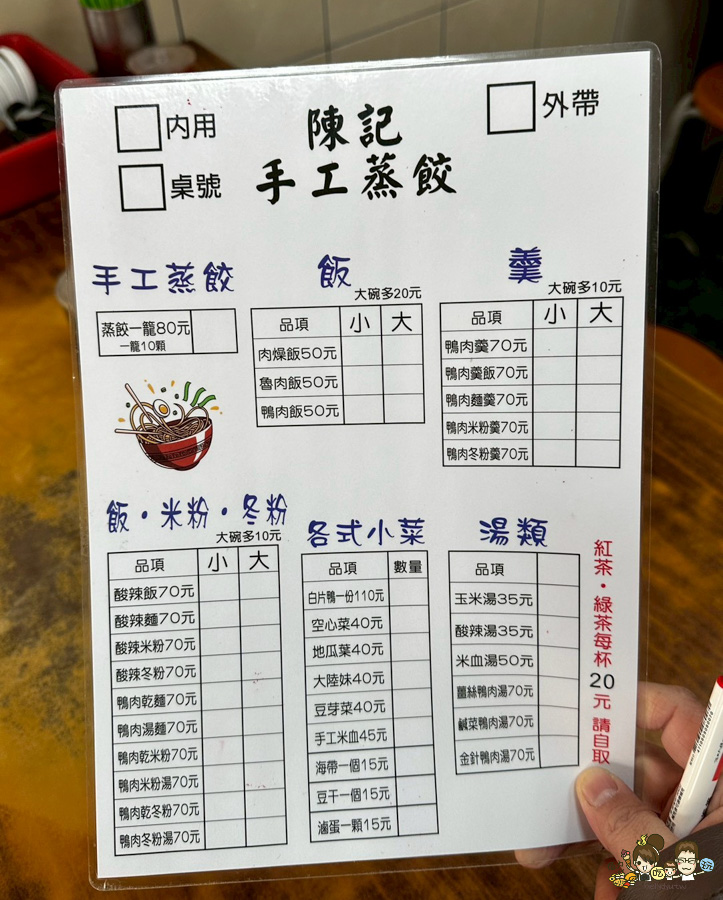 內用
外帶
桌號
陳記
手工蒸餃
手工蒸餃
蒸餃一籠80元
一籠10顆
飯
大碗多20元
品項 小 大
肉燥飯50元
魯肉飯50元
鴨肉飯50元
羹
大碗多10元
品項 小 大
鴨肉羹70元
鴨肉羹飯70元
鴨肉麵羹70元
鴨肉米粉羹70元
鴨肉冬粉羹70元
飯・米粉・冬粉
大碗多10元
品項 小 大
酸辣飯70元
酸辣麵70元
酸辣米粉70元
酸辣冬粉70元
鴨肉乾麵70元
鴨肉湯麵70元
鴨肉乾米粉70元
鴨肉米粉湯70元
鴨肉乾冬粉70元
鴨肉冬粉湯70元
各式小菜
品項 數量
白片鴨一份110元
空心菜40元
地瓜葉40元
大陸妹40元
豆芽菜40元
手工米血45元
海帶一個15元
豆干一個15元
滷蛋一顆15元
湯類
品項
玉米湯35元
酸辣湯35元
米血湯50元
薑絲鴨肉湯70元
鹹菜鴨肉湯70元
金針鴨肉湯70元
紅茶・綠茶每杯20元 請自取
吃
玩